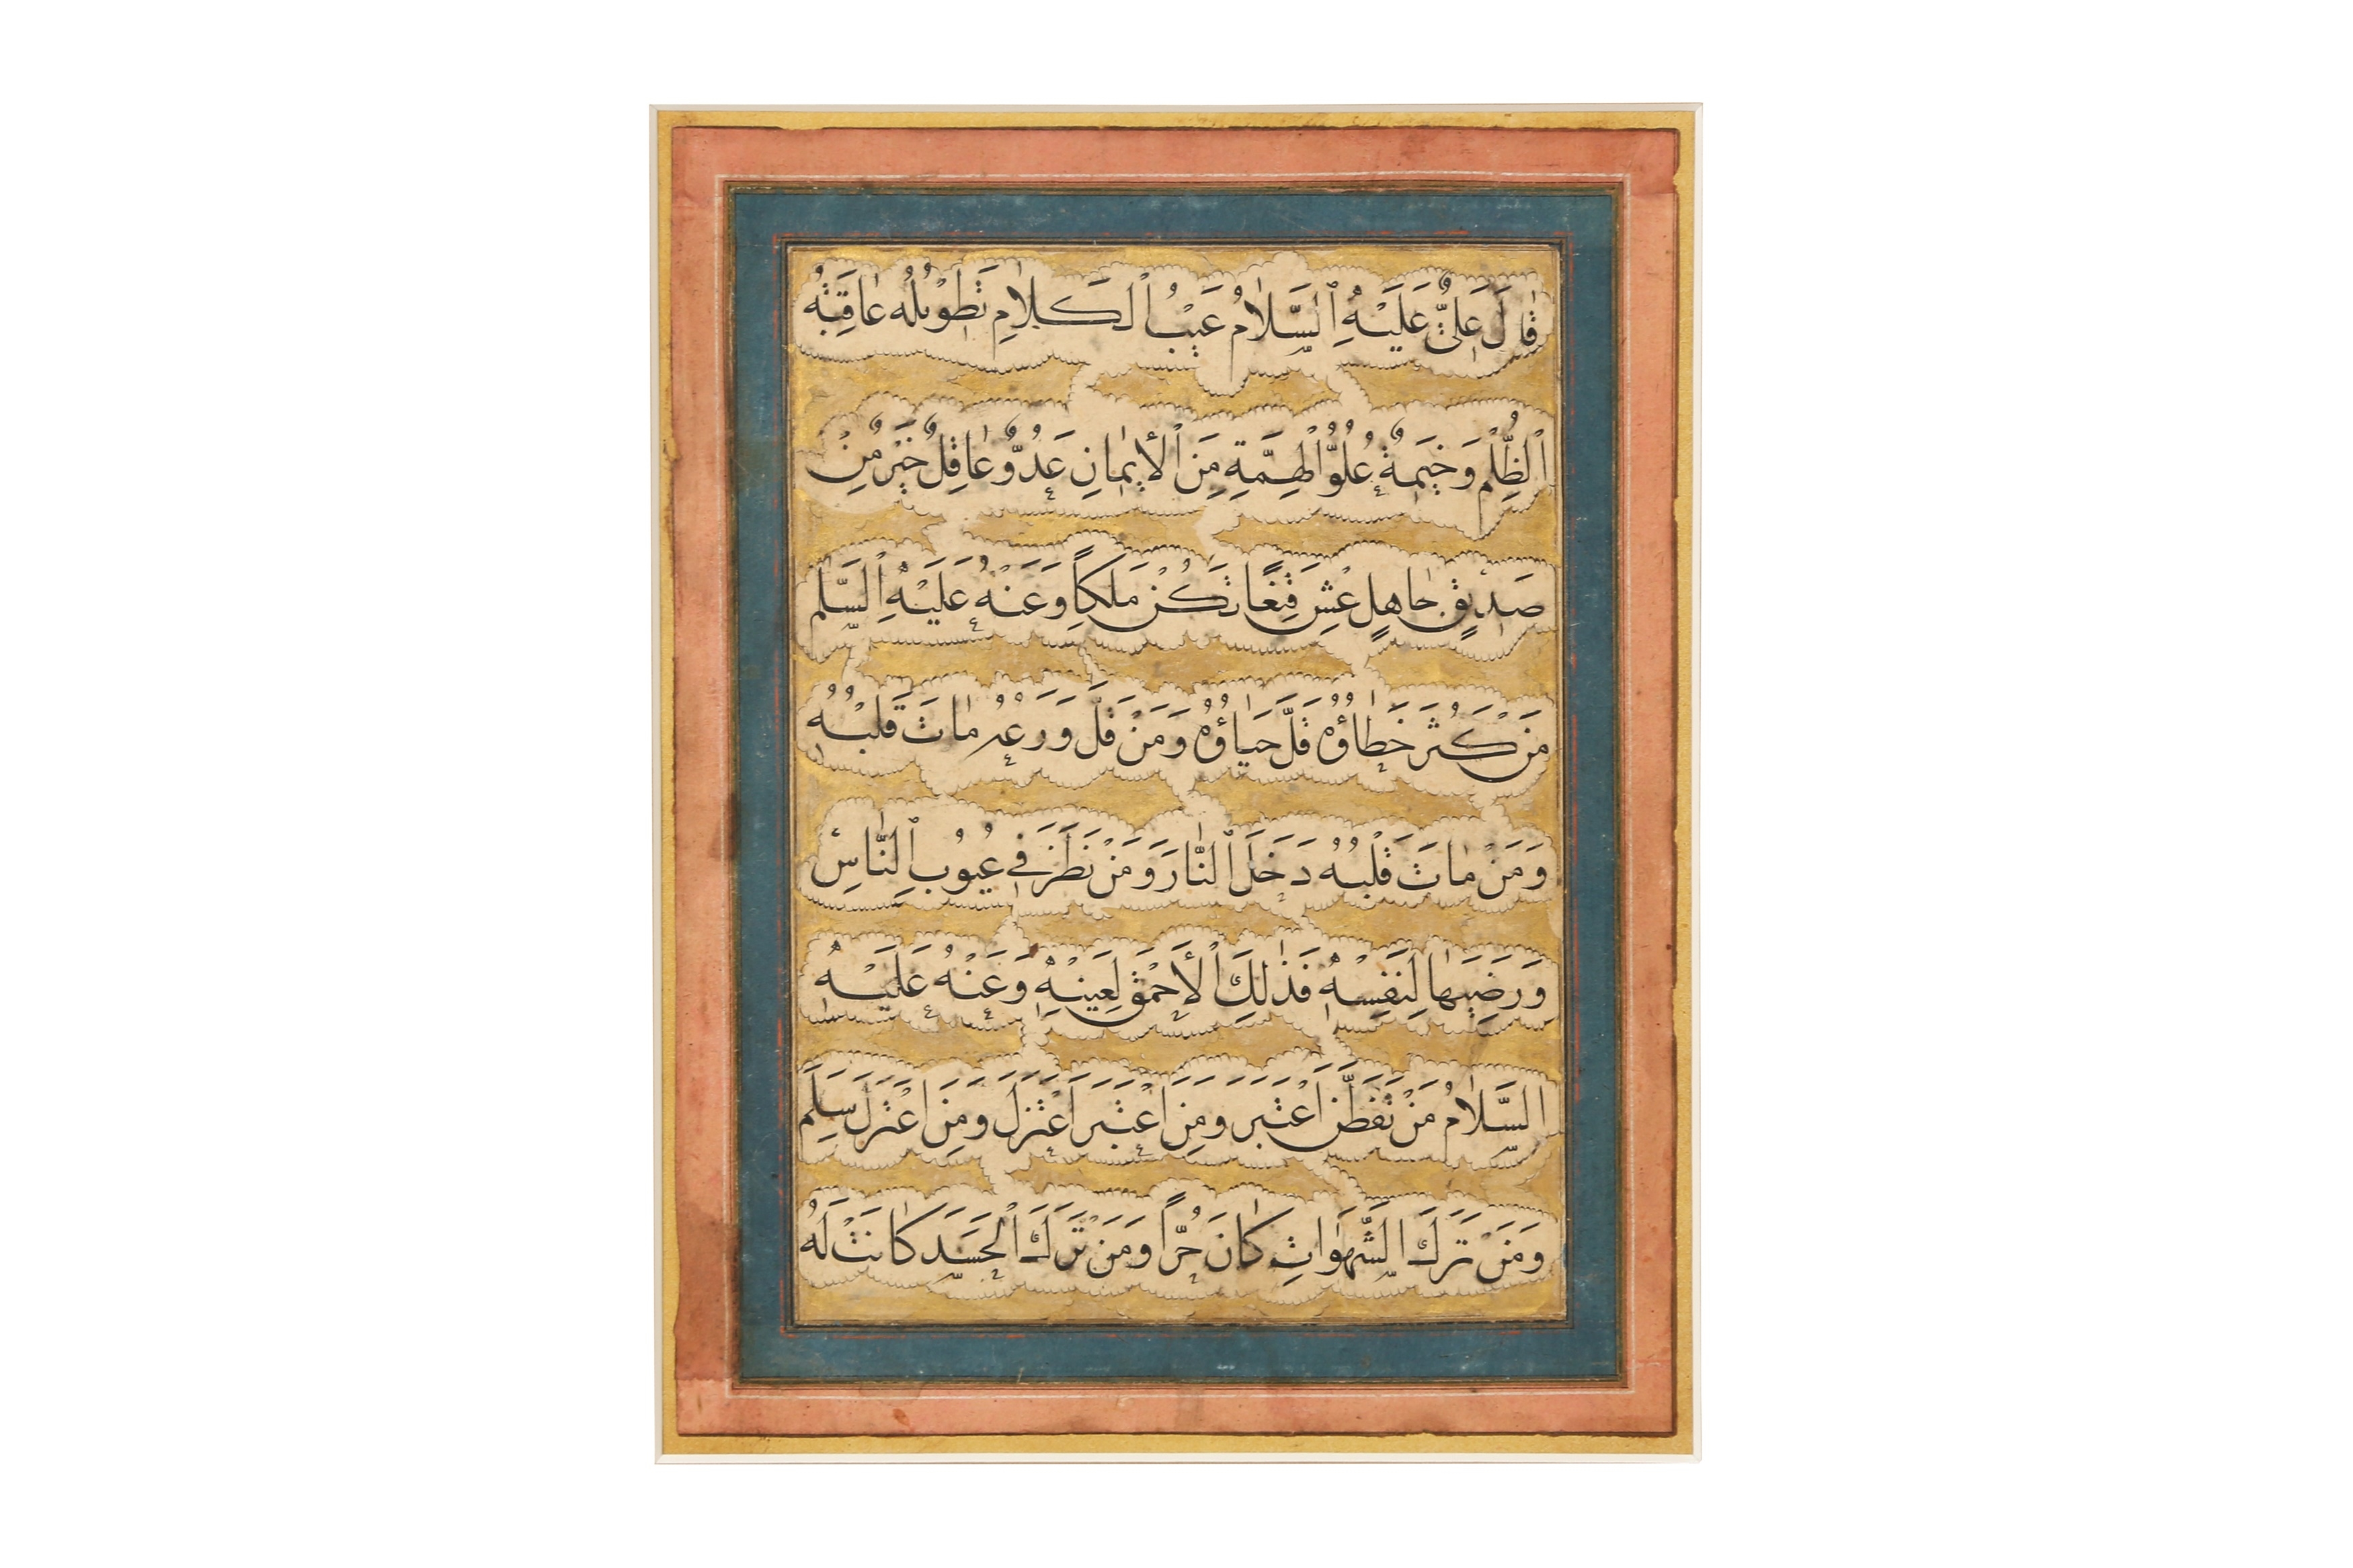 قَالَ عَلِيٌّ عَلَيْهِ السَّلَامُ عَيْبُ الْكَلَامِ تَطْوِيلُهُ عَاقِبَةُ
الظُّلْمِ وَخِيمَةٌ عُلُوُّ الْهِمَّةِ مِنَ الْأِيمَانِ عَدُوٌّ عَاقِلٌ خَيْرٌ مِنْ
صَدِيقٍ جَاهِلٍ عِشْ قَنِعًا تَكُنْ مَلِكًا وَعَنْهُ عَلَيْهِ السَّلٰم
مَنْ كَثُرَ خَطَاؤُهُ قَلَّ حَيَاؤُهُ وَمَنْ قَلَّ وَرَعُهُ مَاتَ قَلْبُهُ
وَمَنْ مَاتَ قَلْبُهُ دَخَلَ النَّارَ وَمَنْ نَظَرَ فِي عُيُوبِ النَّاسِ
وَرَضِيَهَا لِنَفْسِهِ فَذٰلِكَ الْأَحْمَقُ بِعَيْنِهِ وَعَنْهُ عَلَيْهِ
السَّلَامُ مَنْ تَفَطَّنَ اعْتَبَرَ وَمَنِ اعْتَبَرَ اعْتَزَلَ وَمَنِ اعْتَزَلَ سَلِمَ
وَمَنْ تَرَكَ الشَّهَوَاتِ كَانَ حُرًّا وَمَنْ تَرَكَ الْحَسَدَ كَانَتْ لَهُ